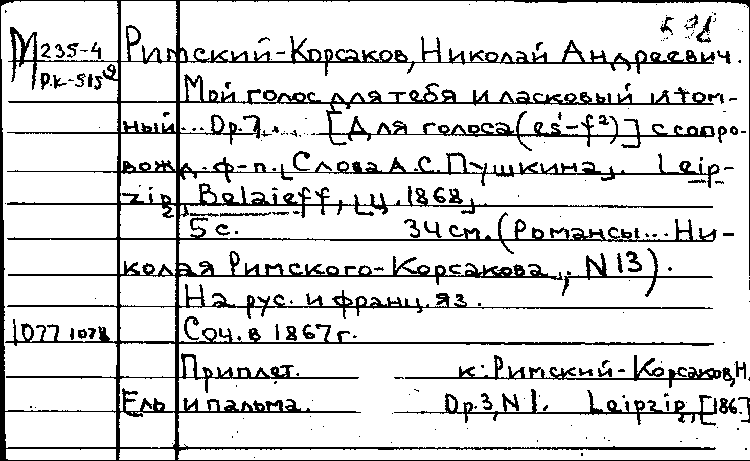 598
М 235-4 Римский-Корсаков, Николай Андреевич.
Р.к-515
Мой голос для тебя и ласковый и том-
ный... Op.7... [Для голоса (es¹-f²)] с сопро-
вожд. ф-п. [Слова А.С. Пушкина]. Leip-
zig, Belaieff, ц. 1868.
5 с. 34 см. (Романсы... Ни-
колая Римского-Корсакова, N 13).
На рус. и франц. яз.
1077 1078 Соч. в 1867 г.
Приплет. к: Римский-Корсаков, Н.
Ель и пальма. Op.3, N 1. Leipzig, [186